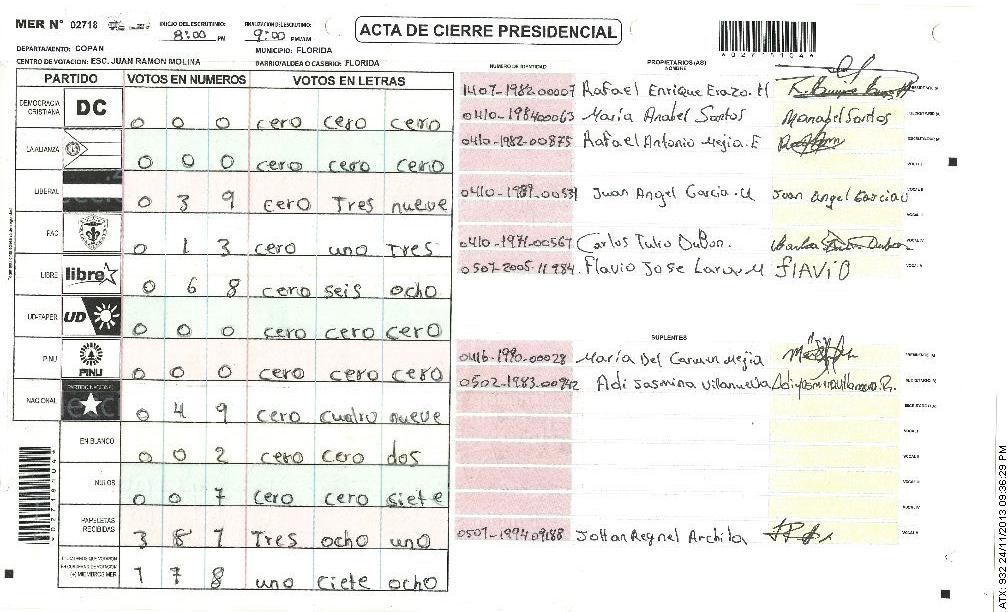 MER N° 02718
INICIO DEL ESCRUTINIO: 8:00 PM
FINALIZACION ESCRUTINIO: 9:00 PM/AM
ACTA DE CIERRE PRESIDENCIAL
DEPARTAMENTO: COPAN
MUNICIPIO: FLORIDA
CENTRO DE VOTACION: ESC. JUAN RAMON MOLINA
BARRIO/ALDEA O CASERIO: FLORIDA
PARTIDO VOTOS EN NUMEROS VOTOS EN LETRAS
DEMOCRACIA CRISTIANA DC 0 0 0 cero cero cero
LA ALIANZA 0 0 0 cero cero cero
LIBERAL 0 3 9 cero Tres nueve
PAC 0 1 3 cero uno Tres
LIBRE libre 0 6 8 cero seis ocho
UD-FAPER UD 0 0 0 cero cero cero
PINU PINU 0 0 0 cero cero cero
NACIONAL PARTIDO NACIONAL 0 4 9 cero cuatro nueve
EN BLANCO 0 0 2 cero cero dos
NULOS 0 0 7 cero cero siete
PAPELETAS RECIBIDAS 3 8 1 Tres ocho uno
(+) MIEMBROS MER 1 7 8 uno ciete ocho
NUMERO DE IDENTIDAD
PROPIETARIOS (AS)
NOMBRE
1407-1982-00007 Rafael Enrique Erazo. H
0410-198400063 María Anabel Santos Manabel Santos
0410-1982-00875 Rafael Antonio Mejia. E
0410-1989-00531 Juan Angel Garcia. Juan Angel Garcia
0410-1971-00567 Carlos Tulio DuBon.
0507-2005-11984 Flavio Jose Lara M flAViO
SUPLENTES
0416-1990-00028 María Del Carmen Mejia
0502-1983-00942 Adi Jasmina Villanueva
0501-1994 09188 Johan Reynel Archita
ATX: 932 24/11/2013 09:36:29 PM